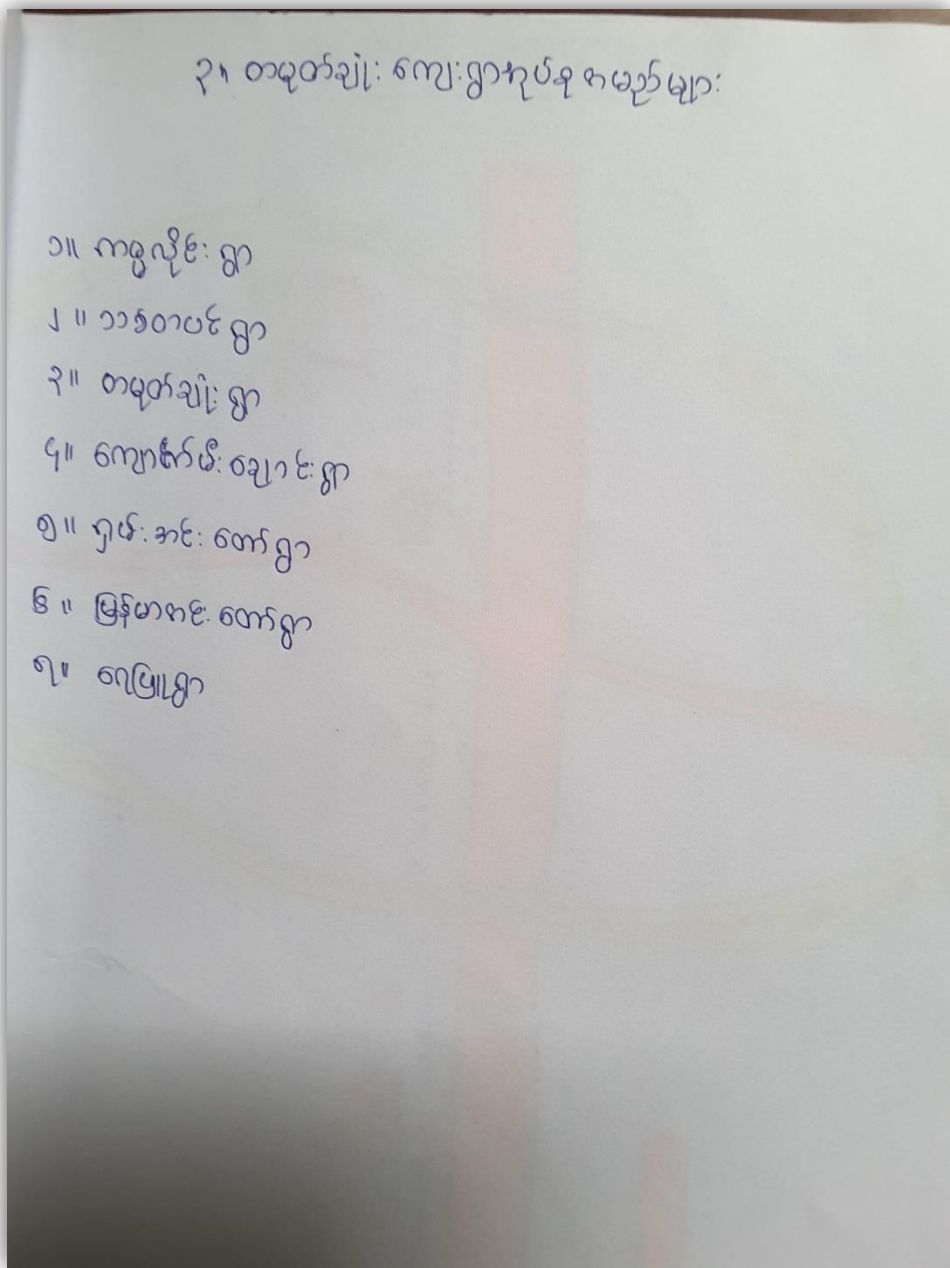 ၃၊ တမုတ်ချုံး ကျေးရွာအုပ်စု အမည်များ
၁။ ကဗွလိုင်း ရွာ
၂။ သစ်တပင် ရွာ
၃။ တမုတ်ချုံး ရွာ
၄။ ကျောက်မီးချောင်း ရွာ
၅။ ရှမ်းအင်းတော် ရွာ
၆။ မြန်မာအင်းတော် ရွာ
၇။ ရေဖြူရွာ